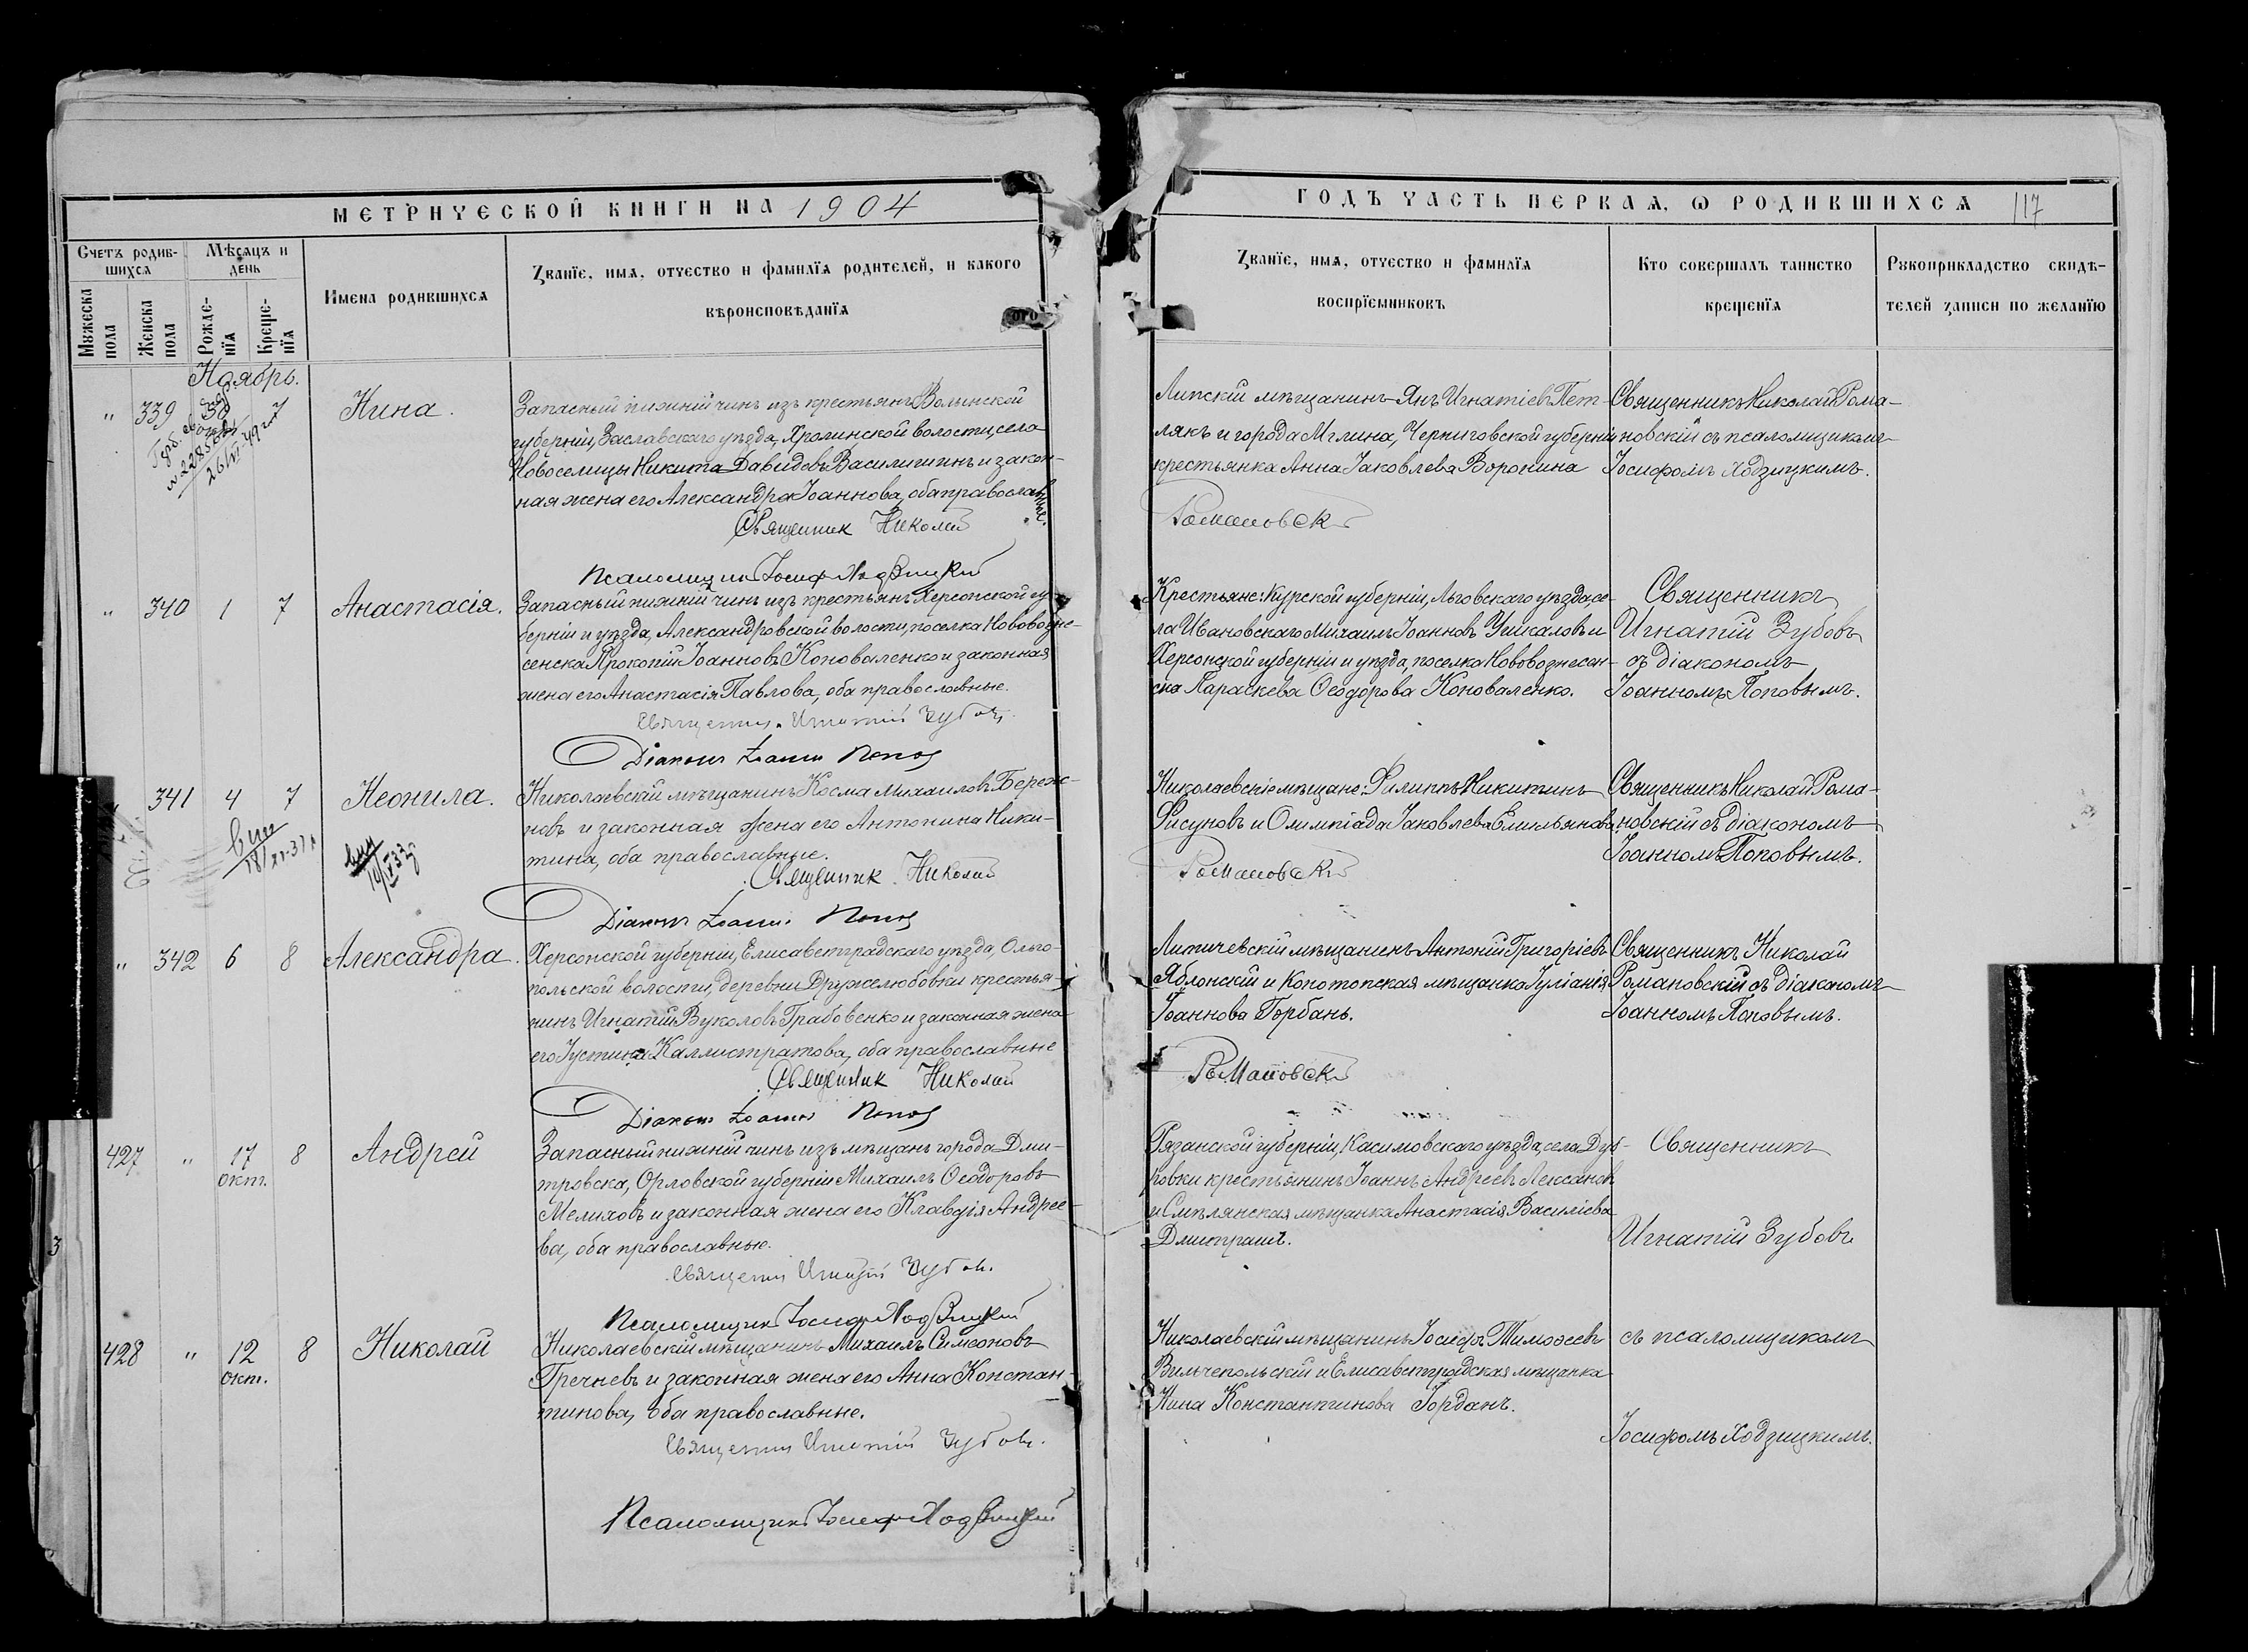 МЕТРИЧЕСКОЙ КНИГИ НА 1904
ГОДЪ ЧАСТЬ ПЕРВАЯ, Ѡ РОДИВШИХСЯ 117
Счетъ родившихся
Мѣсяцъ и день
Имена родившихся
Званїе, имя, отчество и фамилїя родителей, и какого
вѣроисповѣданїя
Мужеска пола
Женска пола
Рожденїя
Крещенїя
Званїе, имя, отчество и фамилїя
воспрїемниковъ
Кто совершалъ таинство
крещенїя
Рукоприкладство свидѣ-
телей записи по желанїю
Ноябрь.
" 339 30 7
Нина.
Запасный нижній чинъ изъ крестьянъ Волынской
губерніи, Заславскаго уѣзда, Хролинской волости, села
Новоселицы Никита Давидовъ Василишинъ и закон-
ная жена его Александра Іоаннова, оба православные.
Священник Николай
Романовскій
Псаломщик Іосиф Ходзицкій
Липскій мѣщанинъ Янъ Игнатіевъ Пет-
лякъ и города Мглина, Черниговской губерніи
крестьянка Анна Іаковлева Воронина
Священникъ Николай Рома-
новскій съ псаломщикомъ
Іосифомъ Ходзицкимъ.
" 340 1 7
Анастасія.
Запасный нижній чинъ изъ крестьянъ Херсонской гу-
берніи и уѣзда, Александровской волости, поселка Нововозне-
сенска Прокопій Іоанновъ Коноваленко и законная
жена его Анастасія Павлова, оба православные.
Священник Игнатій Зубовъ.
Діаконъ Іоаннъ Попов
Крестьяне: Курской губерніи, Льговскаго уѣзда, се-
ла Ивановскаго Михаилъ Іоанновъ Ушкаловъ и
Херсонской губерніи и уѣзда, поселка Нововознесен-
ска Параскева Ѳеодорова Коноваленко.
Священникъ
Игнатій Зубовъ
съ діакономъ
Іоанномъ Поповымъ.
341 4 7
Неонила.
Николаевскій мѣщанинъ Косма Михаиловъ Береж-
новъ и законная жена его Антонина Ники-
тина, оба православные.
Священник Николай
Романовскій
Діаконъ Іоаннъ Попов
Николаевскіе мѣщане: Филиппъ Никитинъ
Фисуновъ и Олимпіада Іаковлева Емильянова.
Священникъ Николай Рома-
новскій съ діакономъ
Іоанномъ Поповымъ.
" 342 6 8
Александра.
Херсонской губерніи, Елисаветградскаго уѣзда, Ольго-
польской волости, деревни Дружелюбовки крестья-
нинъ Игнатій Вуколовъ Грабовенко и законная жена
его Іустина Каллистратова, оба православные
Священник Николай
Романовскій
Діаконъ Іоаннъ Попов
Литичевскій мѣщанинъ Антоній Григоріевъ
Яблонскій и Конотопская мѣщанка Іуліанія
Іоаннова Горбань.
Священникъ Николай
Романовскій съ діакономъ
Іоанномъ Поповымъ.
427 " 17 окт. 8
Андрей
Запасный нижній чинъ изъ мѣщанъ города Дми-
тровска, Орловской губерніи Михаилъ Ѳеодоровъ
Мелиховъ и законная жена его Клавдія Андрее-
ва, оба православные.
Священник Игнатій Зубовъ.
Псаломщик Іосиф Ходзицкій
Рязанской губерніи, Касимовскаго уѣзда, села Дуб-
ровки крестьянинъ Іоаннъ Андреевъ Лексановъ
и Смѣлянская мѣщанка Анастасія Василіева
Священникъ
Игнатій Зубовъ
428 " 12 окт. 8
Николай
Николаевскій мѣщанинъ Михаилъ Симеоновъ
Гречневъ и законная жена его Анна Констан-
тинова, оба православные.
Священник Игнатій Зубовъ.
Псаломщик Іосиф Ходзицкій
Николаевскій мѣщанинъ Іосифъ Тимоѳеевъ
Вильчепольскій и Елисаветградская мѣщанка
Нина Константинова Горданъ.
съ псаломщикомъ
Іосифомъ Ходзицкимъ.